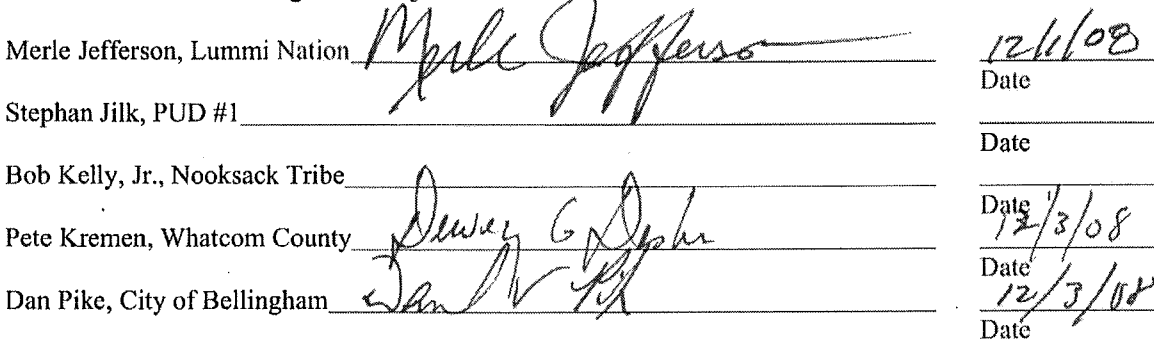 Merle Jefferson, Lummi Nation Merle Jefferson 12/1/08
Date
Stephan Jilk, PUD #1
Date
Bob Kelly, Jr., Nooksack Tribe
Date
Pete Kremen, Whatcom County Dewey G 12/3/08
Date
Dan Pike, City of Bellingham Dan 12/3/08
Date